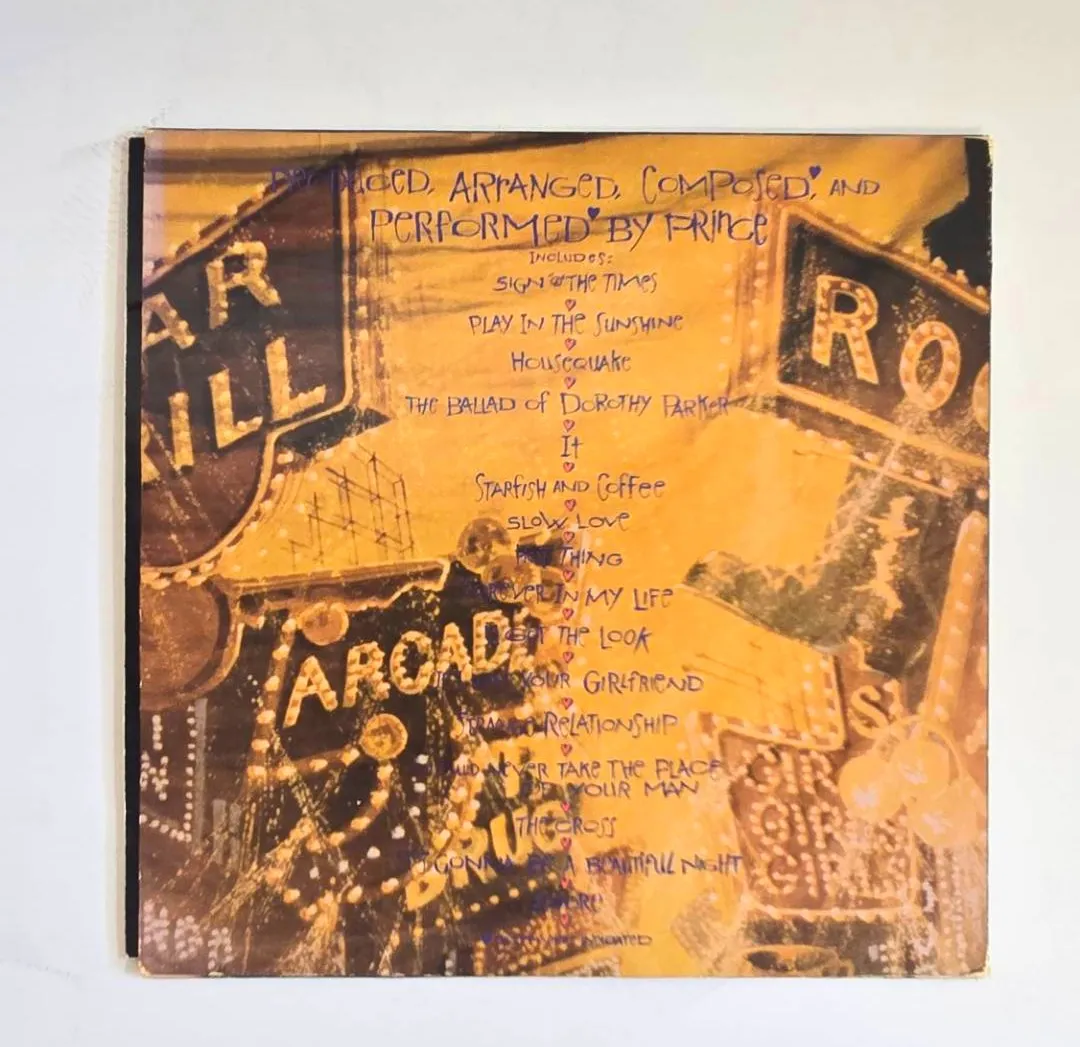 PRODUCED, ARRANGED, COMPOSED, AND
PERFORMED BY PRINCE
INCLUDES:
SIGN O THE TIMES
PLAY IN THE SUNSHINE
HOUSEQUAKE
THE BALLAD OF DOROTHY PARKER
It
STARFISH AND COFFEE
SLOW LOVE
HOT THING
FOREVER IN MY LIFE
U GOT THE LOOK
IF I WAS YOUR GIRLFRIEND
STRANGE RELATIONSHIP
I COULD NEVER TAKE THE PLACE
OF YOUR MAN
THE CROSS
IT'S GONNA BE A BEAUTIFUL NIGHT
ADORE
INDICATED
AR
ILL
RO
ARCADE
DRUGS
GIRLS
GIRLS
GIRLS